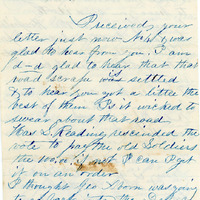 Received your
letter just now No 4. I was
glad to hear from you. I am
d-d glad to hear that that
road scrape is settled
& to hear you got a little the
best of them Is it wicked to
swear about that road
Has S. Reading rescinded the
vote to pay the old Soldiers
the I can get
it on an order
I thought Geo was going
to